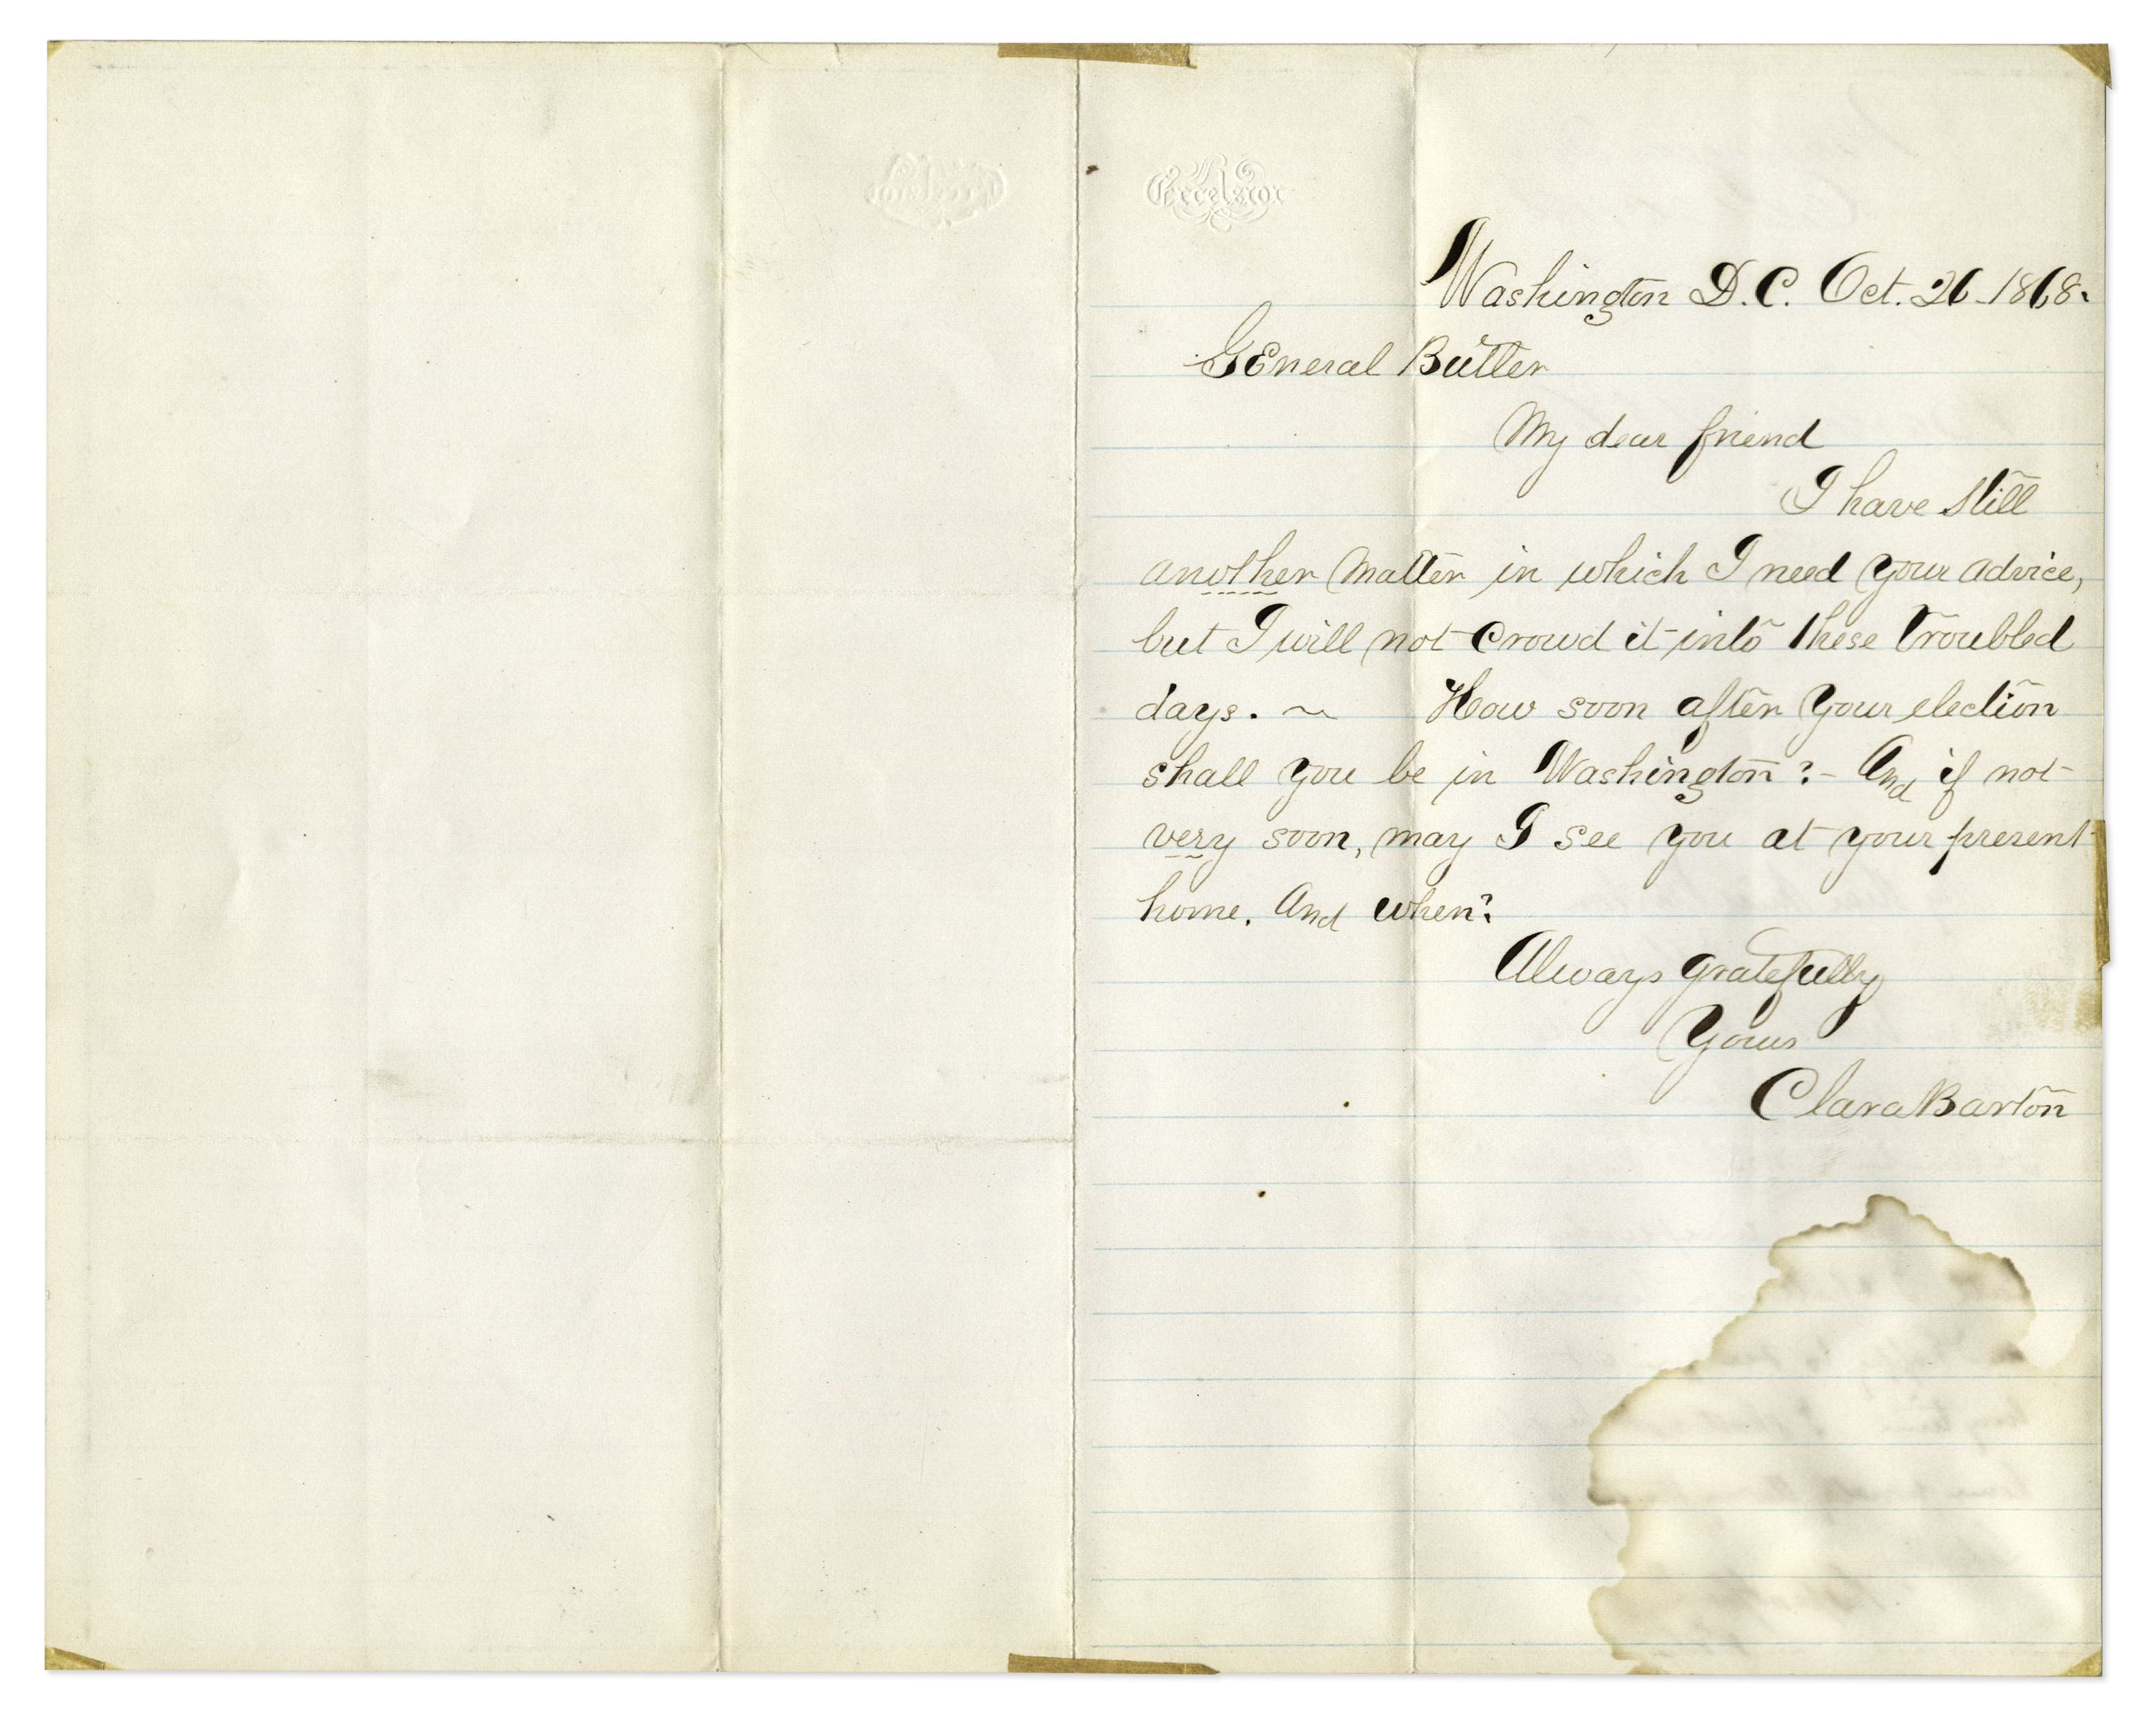 Excelsior
Washington D.C. Oct. 26 - 1868.
General Butler
My dear friend
I have still
another matter in which I need your advice,
but I will not crowd it into these troubled
days. ~ How soon after your election
shall you be in Washington? - And if not
very soon, may I see you at your present
home. And when?
Always gratefully
Yours
Clara Barton